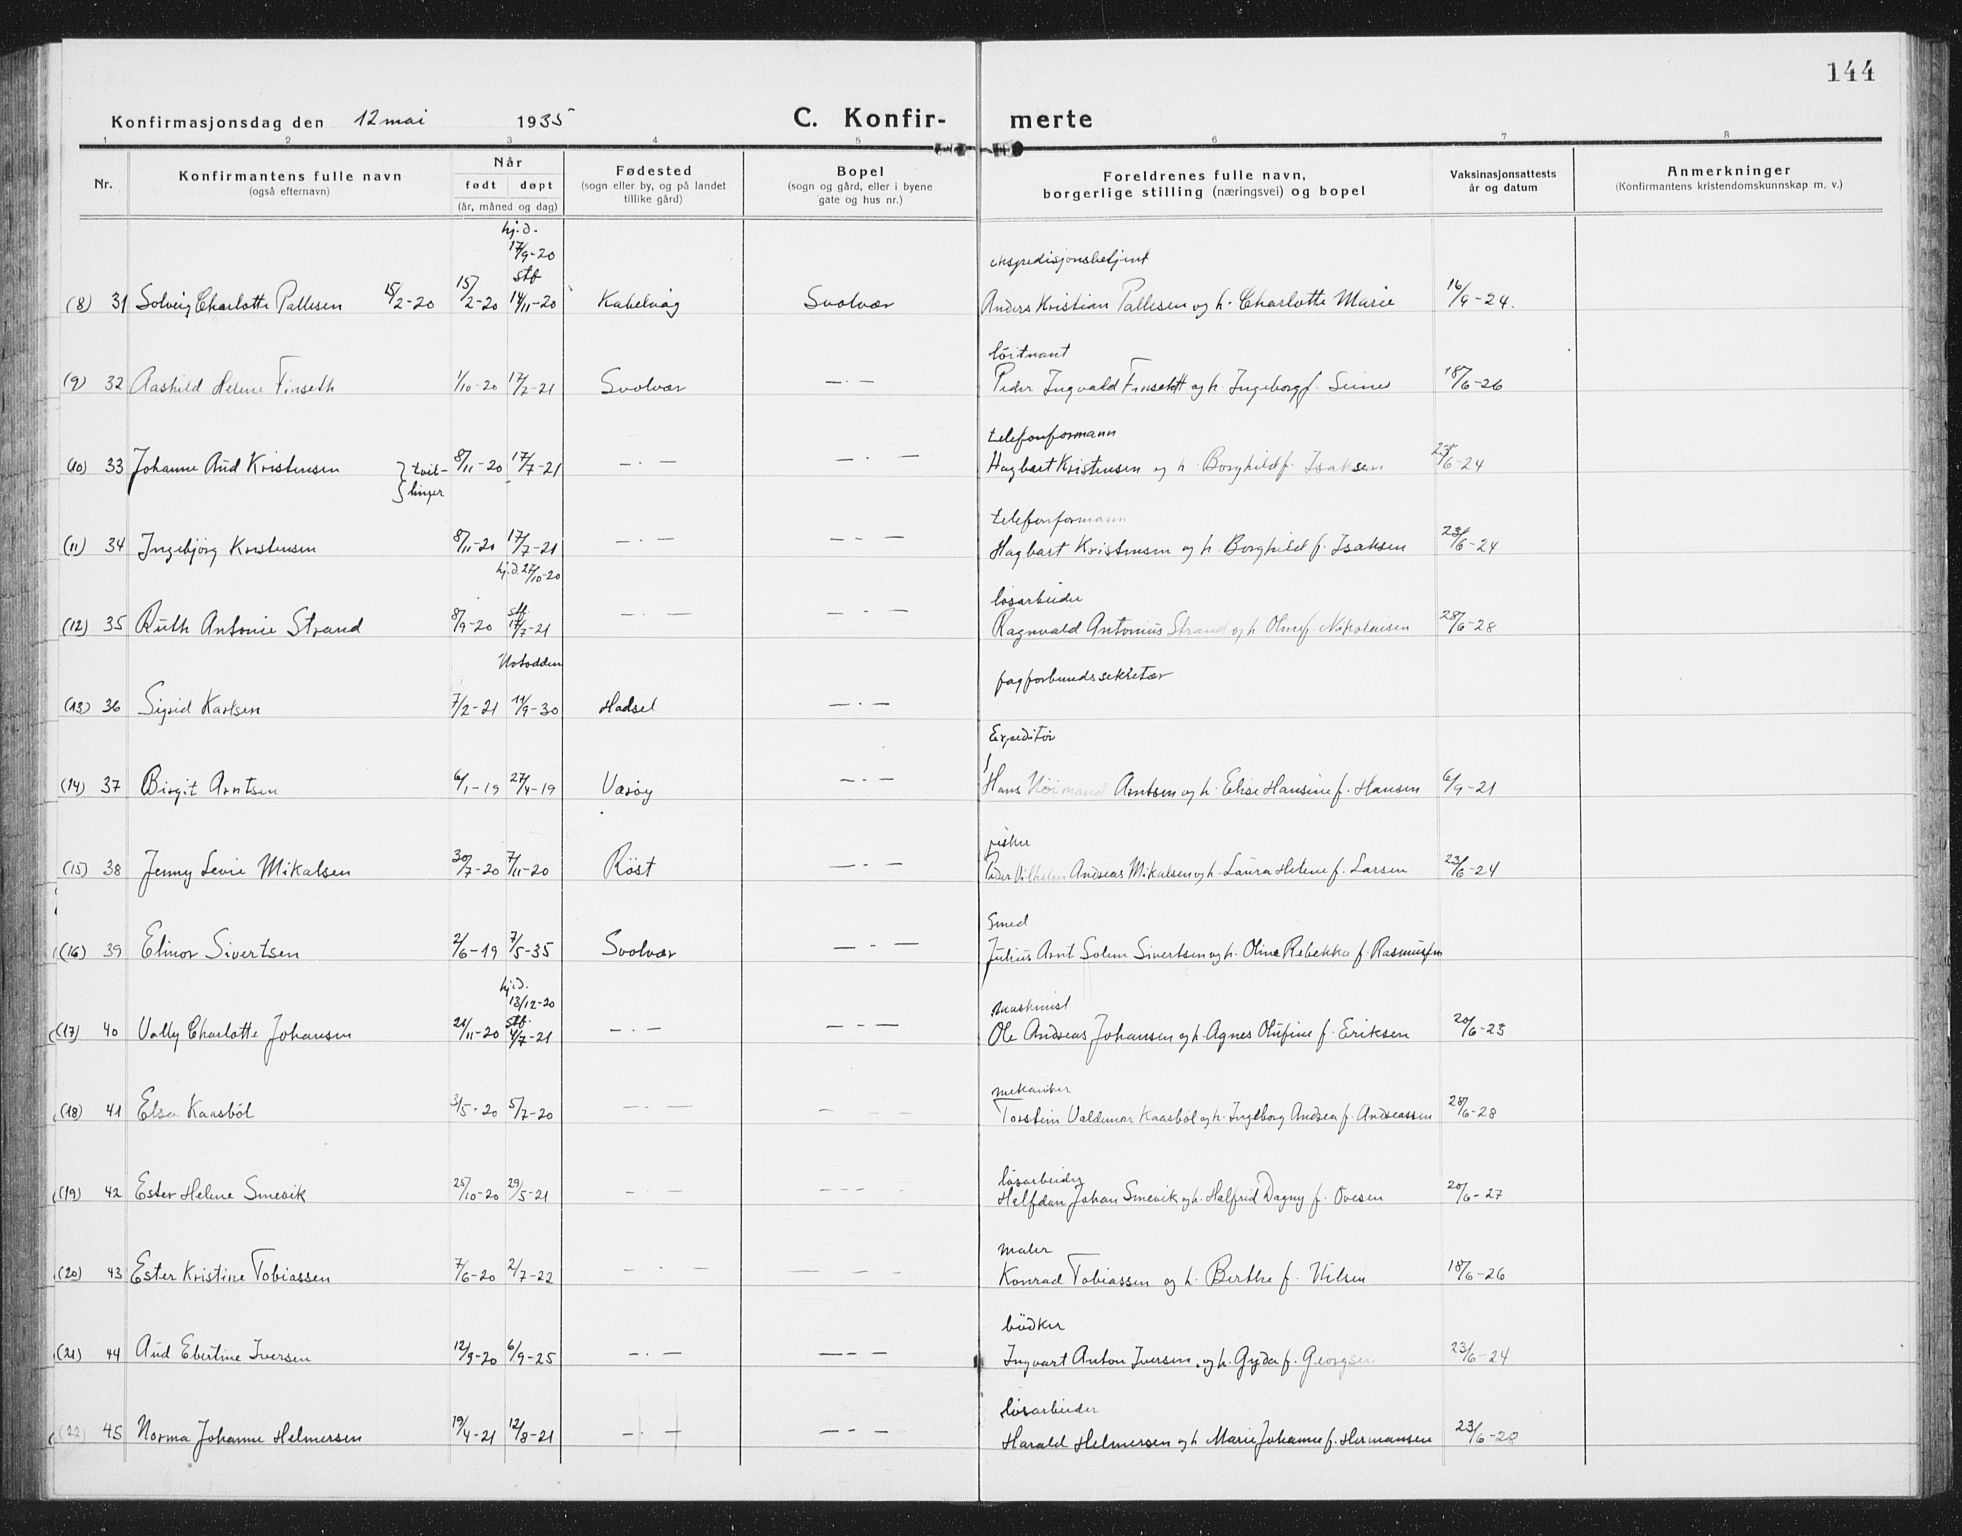 144
Konfirmasjonsdag den 12 mai 1935 C. Konfir- merte
1 2 3 4 5 6 7 8
Nr. Konfirmantens fulle navn (også efternavn) Når født døpt (år, måned og dag) Fødested (sogn eller by, og på landet tillike gård) Bopel (sogn og gård, eller i byene gate og hus nr.) Foreldrenes fulle navn, borgerlige stilling (næringsvei) og bopel Vaksinasjonsattests år og datum Anmerkninger (Konfirmantens kristendomskunnskap m. v.)
hj.d. 17/9-20 stf ekspedisjonsbetjent
(8) 31 Solveig Charlotte Pallesen 15/2-20 15/2-20 14/11-20 Kabelvåg Svolvær Anders Kristian Pallesen og h. Charlotte Marie 16/9-24.
løitnant
(9) 32 Aashild Helene Finseth 1/10-20 17/7-21 Svolvær —·— Peder Ingvald Finseth og h. Ingeborg f. 18/6-26
telefonformann
(10) 33 Johanne Aud Kristensen } tvil- 8/11-20 17/7-21 —·— —·— Hagbart Kristensen og h. Borghild f. Isaksen 23/6-24
linger
telefonformann
(11) 34 Ingebjørg Kristensen 8/11-20 17/7-21 —·— —·— Hagbart Kristensen og h. Borghild f. Isaksen 23/6-24
hj.d. 27/10-20 løsarbeider
(12) 35 Ruth Antonie Strand 8/9-20 stf. 17/7-21 —·— —·— Ragnvald Antonius Strand og h. Oline f. 28/6-28
Notodden fagforbundssekretær
(13) 36 Sigrid Karlsen 7/2-21 14/9-30 Hadsel —·—
Expeditør
(14) 37 Birgit Arntsen 6/1-19 27/4-19 Værøy —·— Hans Arntsen og h. Elise Hansine f. Hansen 6/9-21
fisker
(15) 38 Jenny Levie Mikalsen 30/7-20 7/11-20 Röst —·— Peder Vilhelm Andreas Mikalsen og h. Laura Helene f. Larsen 23/6-24
Smed
(16) 39 Elinor Sivertsen 2/6-19 7/5-35 Svolvær —·— Julius Arnt Solem Sivertsen og h. Oline Rebekka f. Rasmussen
hj.d. 13/12-20 maskinist
(17) 40 Vally Charlotte Johansen 21/11-20 stf. 4/7-21 —·— —·— Ole Andreas Johansen og h. Agnes Olufine f. Eriksen 20/6-23
mekaniker
(18) 41 Elsa Kaasböl 3/5-20 5/7-20 —·— — — Torstein Valdemar Kaasböl og h. Ingeborg Andrea f. Andreassen 28/6-28
løsarbeider
(19) 42 Ester Helene Smevik 25/10-20 29/5-21 —·— — — — Helfdan Johan Smevik og h. Halfrid Dagny f. Ovesen 20/6-27
maler
(20) 43 Ester Kristine Tobiassen 7/6-20 2/7-22 —·— — — — Konrad Tobiassen og h. Berthe f. Nilsen 18/6-26
bödker
(21) 44 Aud Ebertine Iversen 12/9-20 6/9-25 —·— — — — Ingvart Anton Iversen og h. Gyda f. Georgsen 23/6-24
løsarbeider
(22) 45 Norma Johanne Helmersen 19/4-21 12/8-21 —·— — — — Harald Helmersen og h. Marie Johanne f. Hermansen 23/6-28